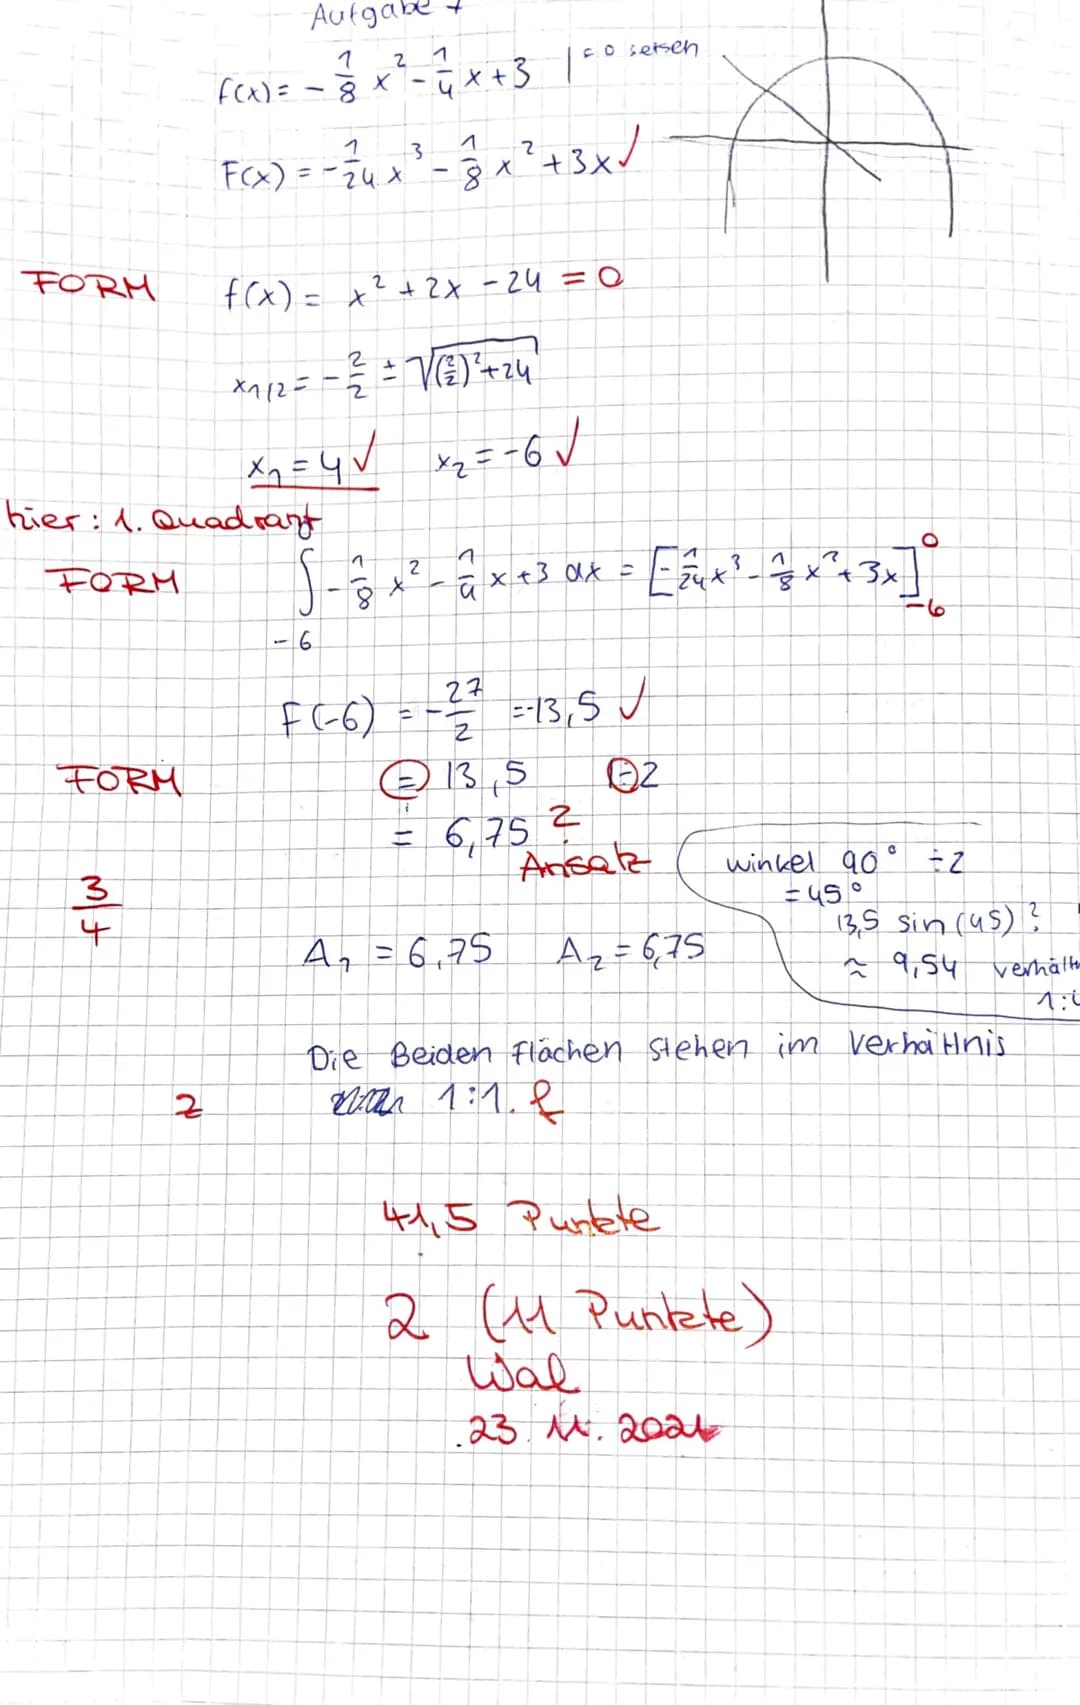 Aufgabe
f(x) = - 1/8 x² - 1/4 x + 3 | = 0 setsen
F(x) = - 1/24 x³ - 1/8 x² + 3x ✓
FORM f(x) = x² + 2x - 24 = 0
x1/2 = - 2/2 ± √((2/2)² + 24)
x₁ = 4 ✓ x₂ = -6 ✓
hier: 1. Quadrant
FORM ∫ - 1/8 x² - 1/4 x + 3 dx = [- 1/24 x³ - 1/8 x² + 3x] 0
-6 -6
F(-6) = - 27/2 = -13,5 ✓
FORM = 13,5 ÷2
= 6,75 ?
Ansatz
winkel 90° ÷2
= 45°
3/4
13,5 sin(45)?
A₁ = 6,75 A₂ = 6,75
≈ 9,54
Die Beiden Flächen stehen im Verhältnis
2 1:1. f
41,5 Punkte
2 (11 Punkte)
Wal
23.11.2021